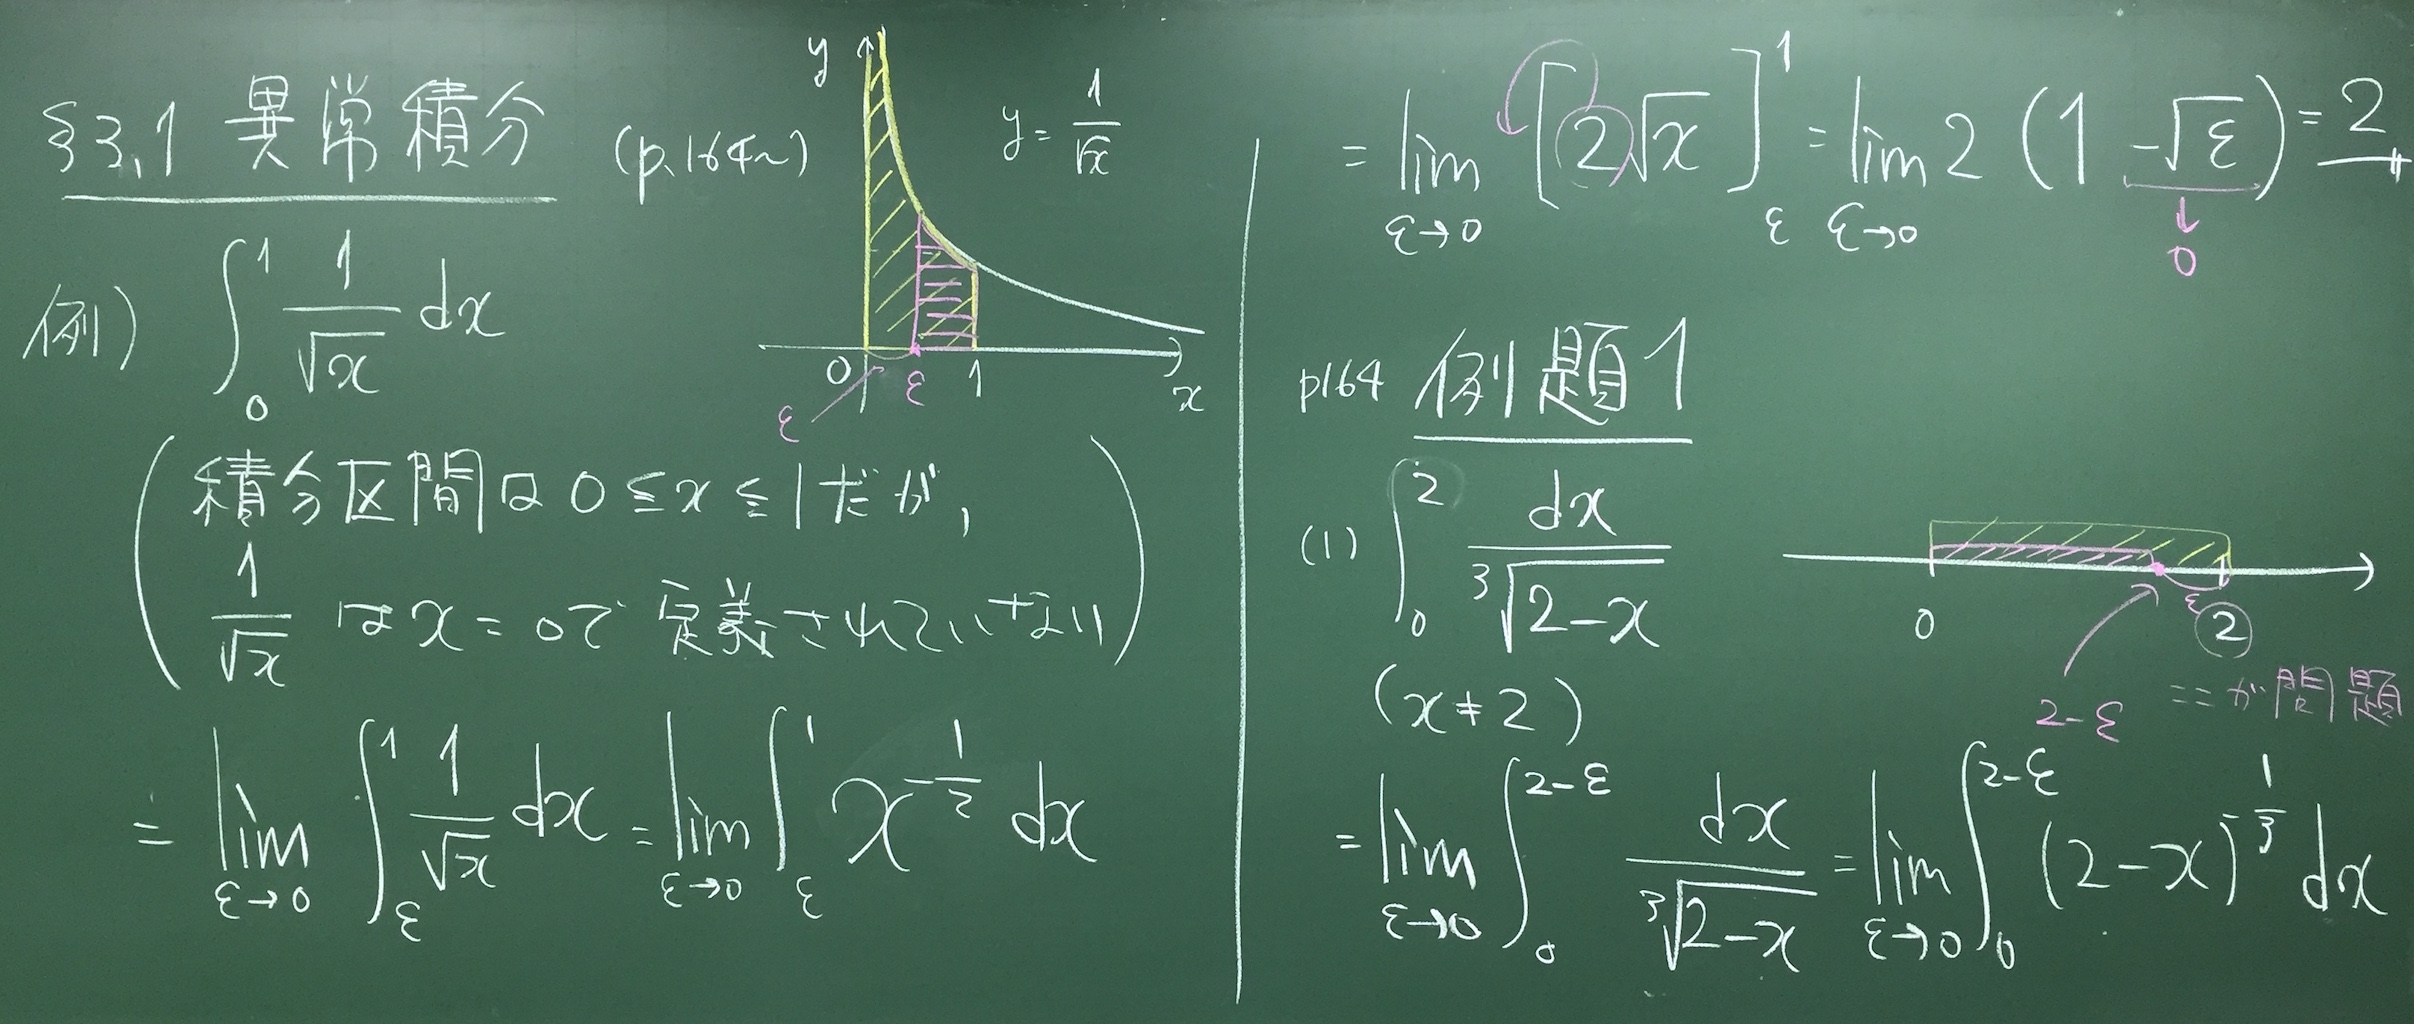 §3.1 異常積分 (p.164~)
例) ∫₀¹ 1/√x dx
y
y = 1/√x
0 ε 1 x
ε
(積分区間は 0≦x≦1だが,
1/√x は x=0で 定義されていない)
= lim_{ε→0} ∫_ε^1 1/√x dx = lim_{ε→0} ∫_ε^1 x^{-1/2} dx
= lim_{ε→0} [2√x]_ε^1 = lim_{ε→0} 2(1-√ε) = 2
↓
0
p164 例題1
(1) ∫₀² dx/∛(2-x)
(x≠2)
0 ε 2
2-ε ここが問題
= lim_{ε→0} ∫_0^{2-ε} dx/∛(2-x) = lim_{ε→0} ∫_0^{2-ε} (2-x)^{-1/3} dx